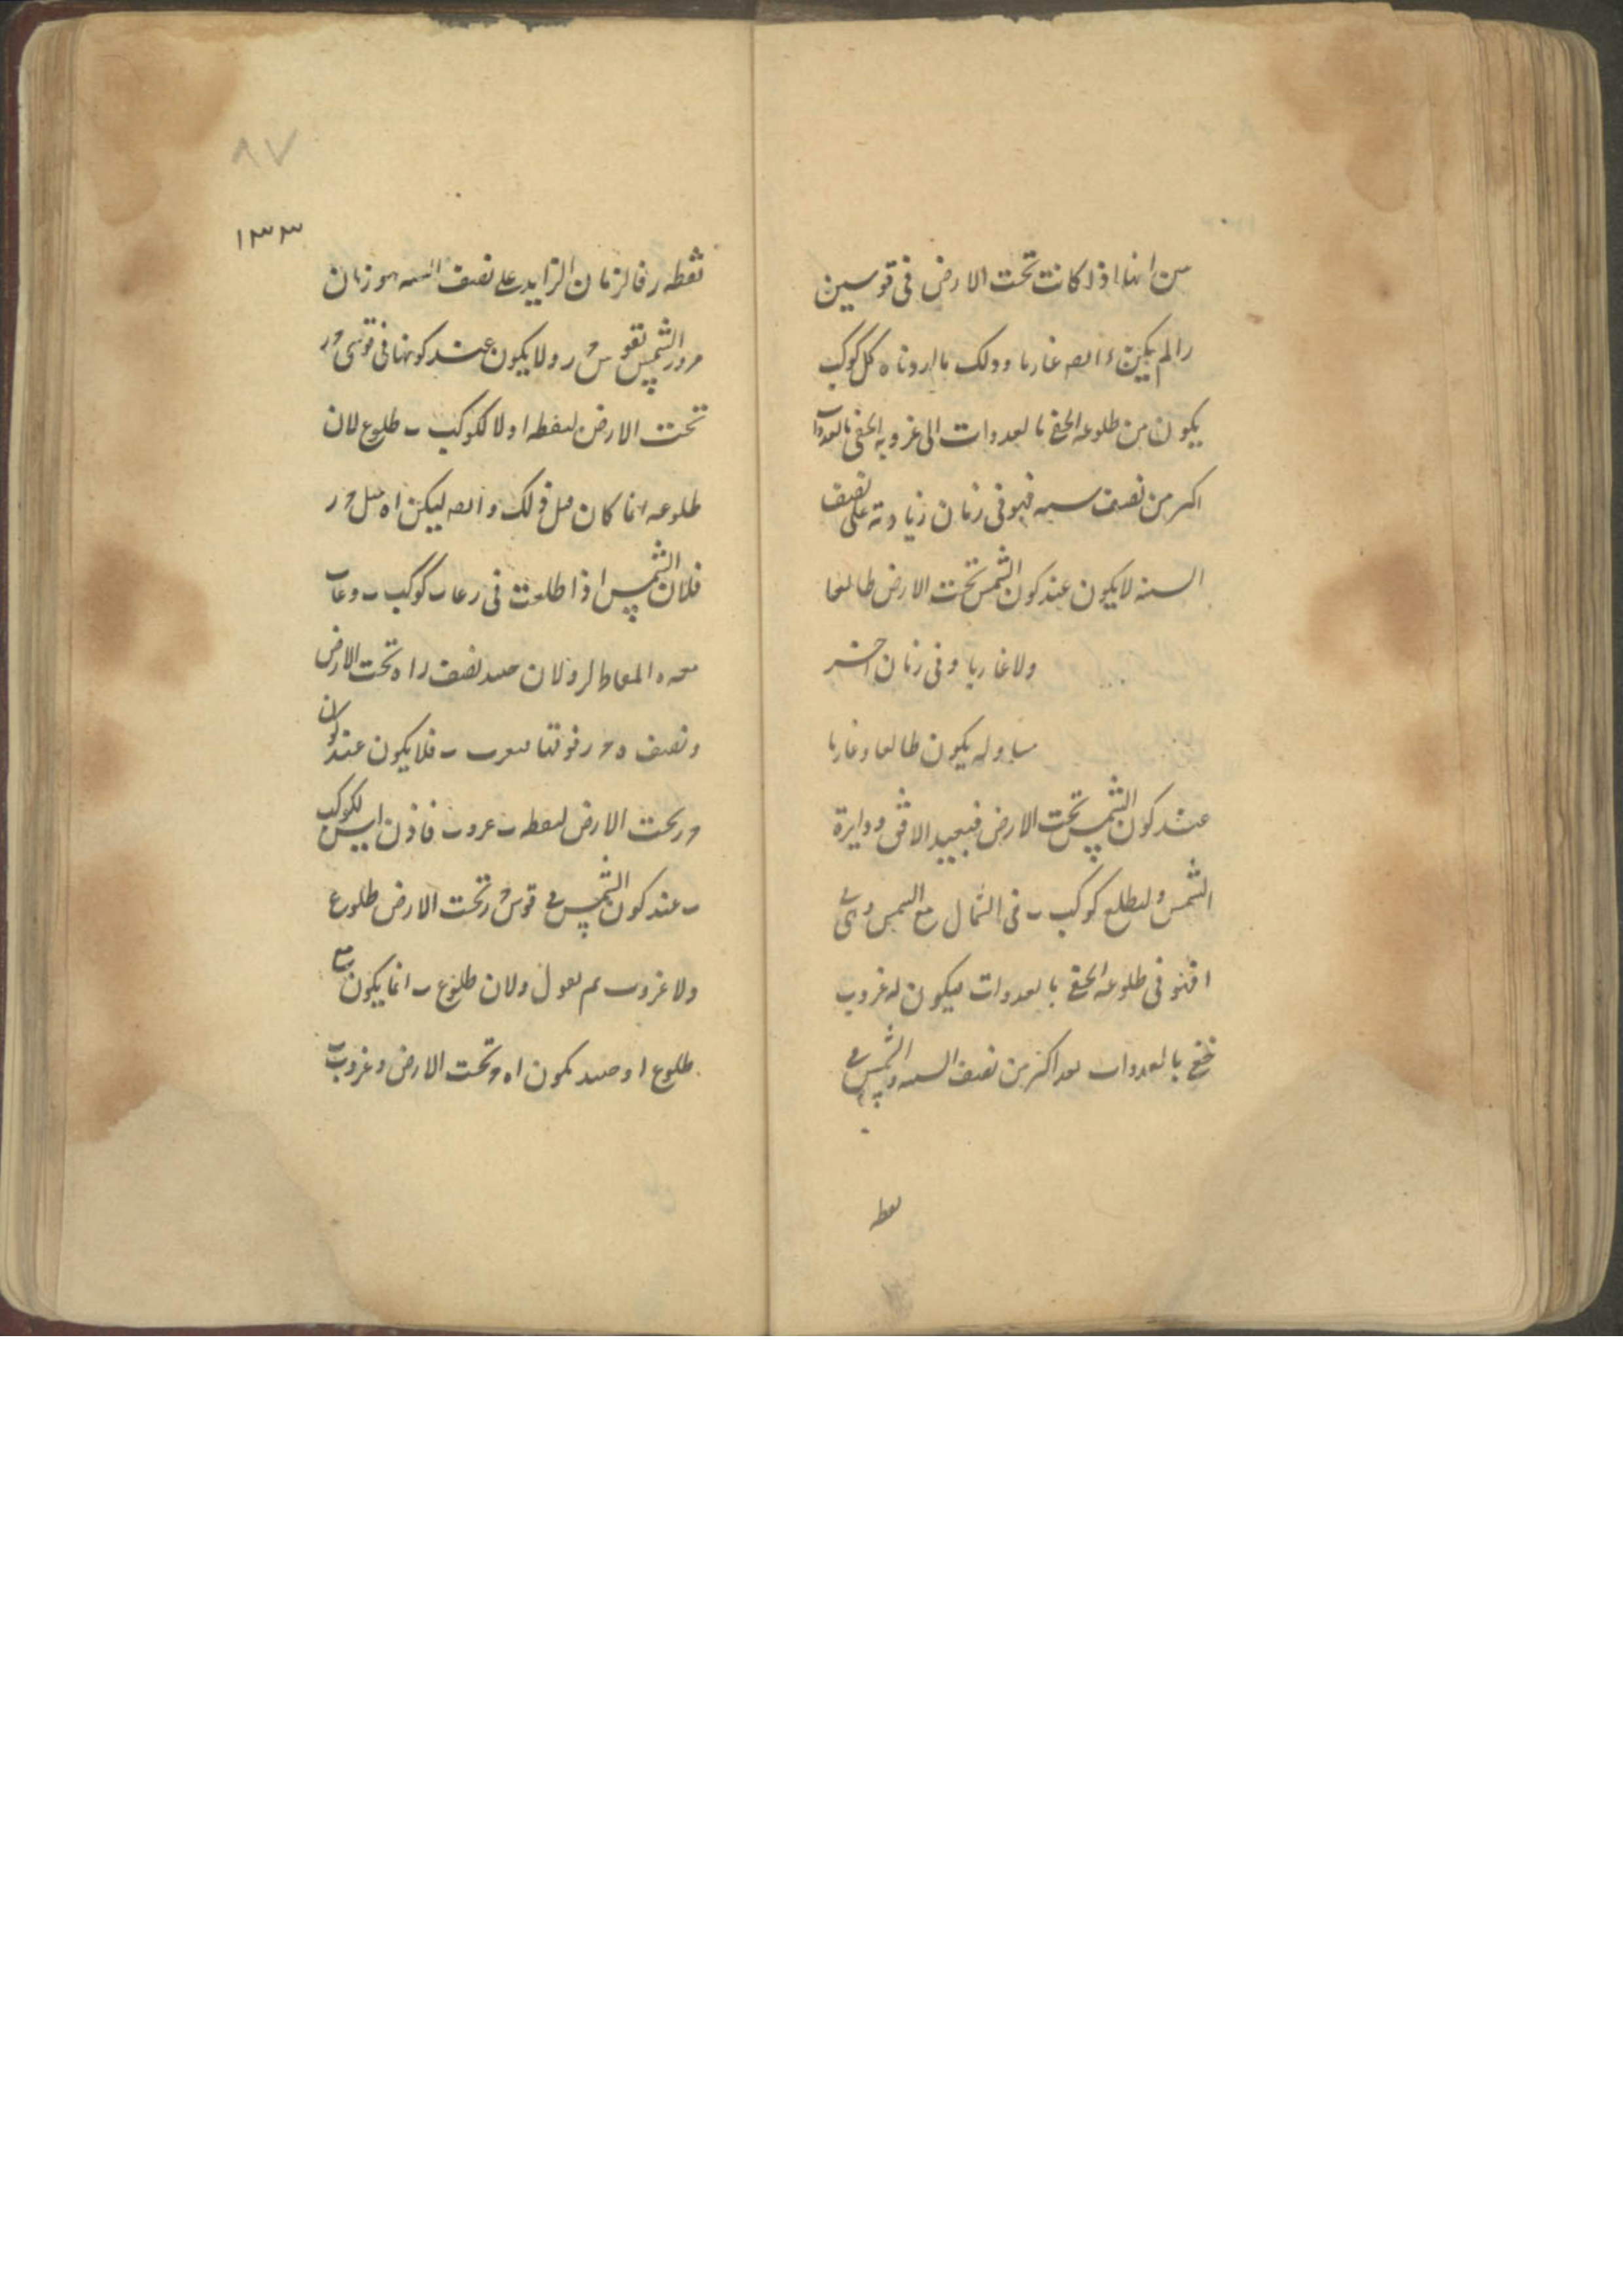 من انها اذا كانت تحت الارض فى قوسين
را لم يكن غاربا وذلك ما اردناه كل كوكب
يكون من طلوعه الخفى بالعدوات الى غروبه الخفى بالعدوات
اكثر من نصف سنه فهو فى زمان زيادته على نصف
السنه لا يكون عند كون الشمس تحت الارض طالعا
ولا غاربا وفى زمان اخر
مساو له يكون طالعا وغاربا
عند كون الشمس تحت الارض فنعيد الافق ودايرة
الشمس وليطلع كوكب ب فى الشمال مع الشمس وهى
فى طلوعه الخفى بالعدوات ليكون له غروب
خفى بالعدوات بعد اكثر من نصف السنه والشمس فى
نقطه
٨٧
١٣٣
نقطه ر فالزمان الزايد على نصف السنه هو زمان
مرور الشمس بقوس ح ر ولا يكون عند كونها فى قوس ح ر
تحت الارض لنقطه ا ولا لكوكب ب طلوع لان
طلوعه انما كان قبل ذلك وايضا ليكن اه مثل ح ر
فلان الشمس اذا طلعت فى ر غاب كوكب ب وغاب
معه ه المقاطر لر ولان حينئذ نصف را ه تحت الارض
ونصف ه ح ر فوقها يغرب ب فلا يكون عند كون
ح ر تحت الارض لنقطه ب غروب فاذن ليس لكوكب
ب عند كون الشمس فى قوس ح ر تحت الارض طلوع
ولا غروب ثم نقول ولان طلوع ب انما يكون مع
طلوع ا وحينئذ يكون اه ح تحت الارض وغروب ب